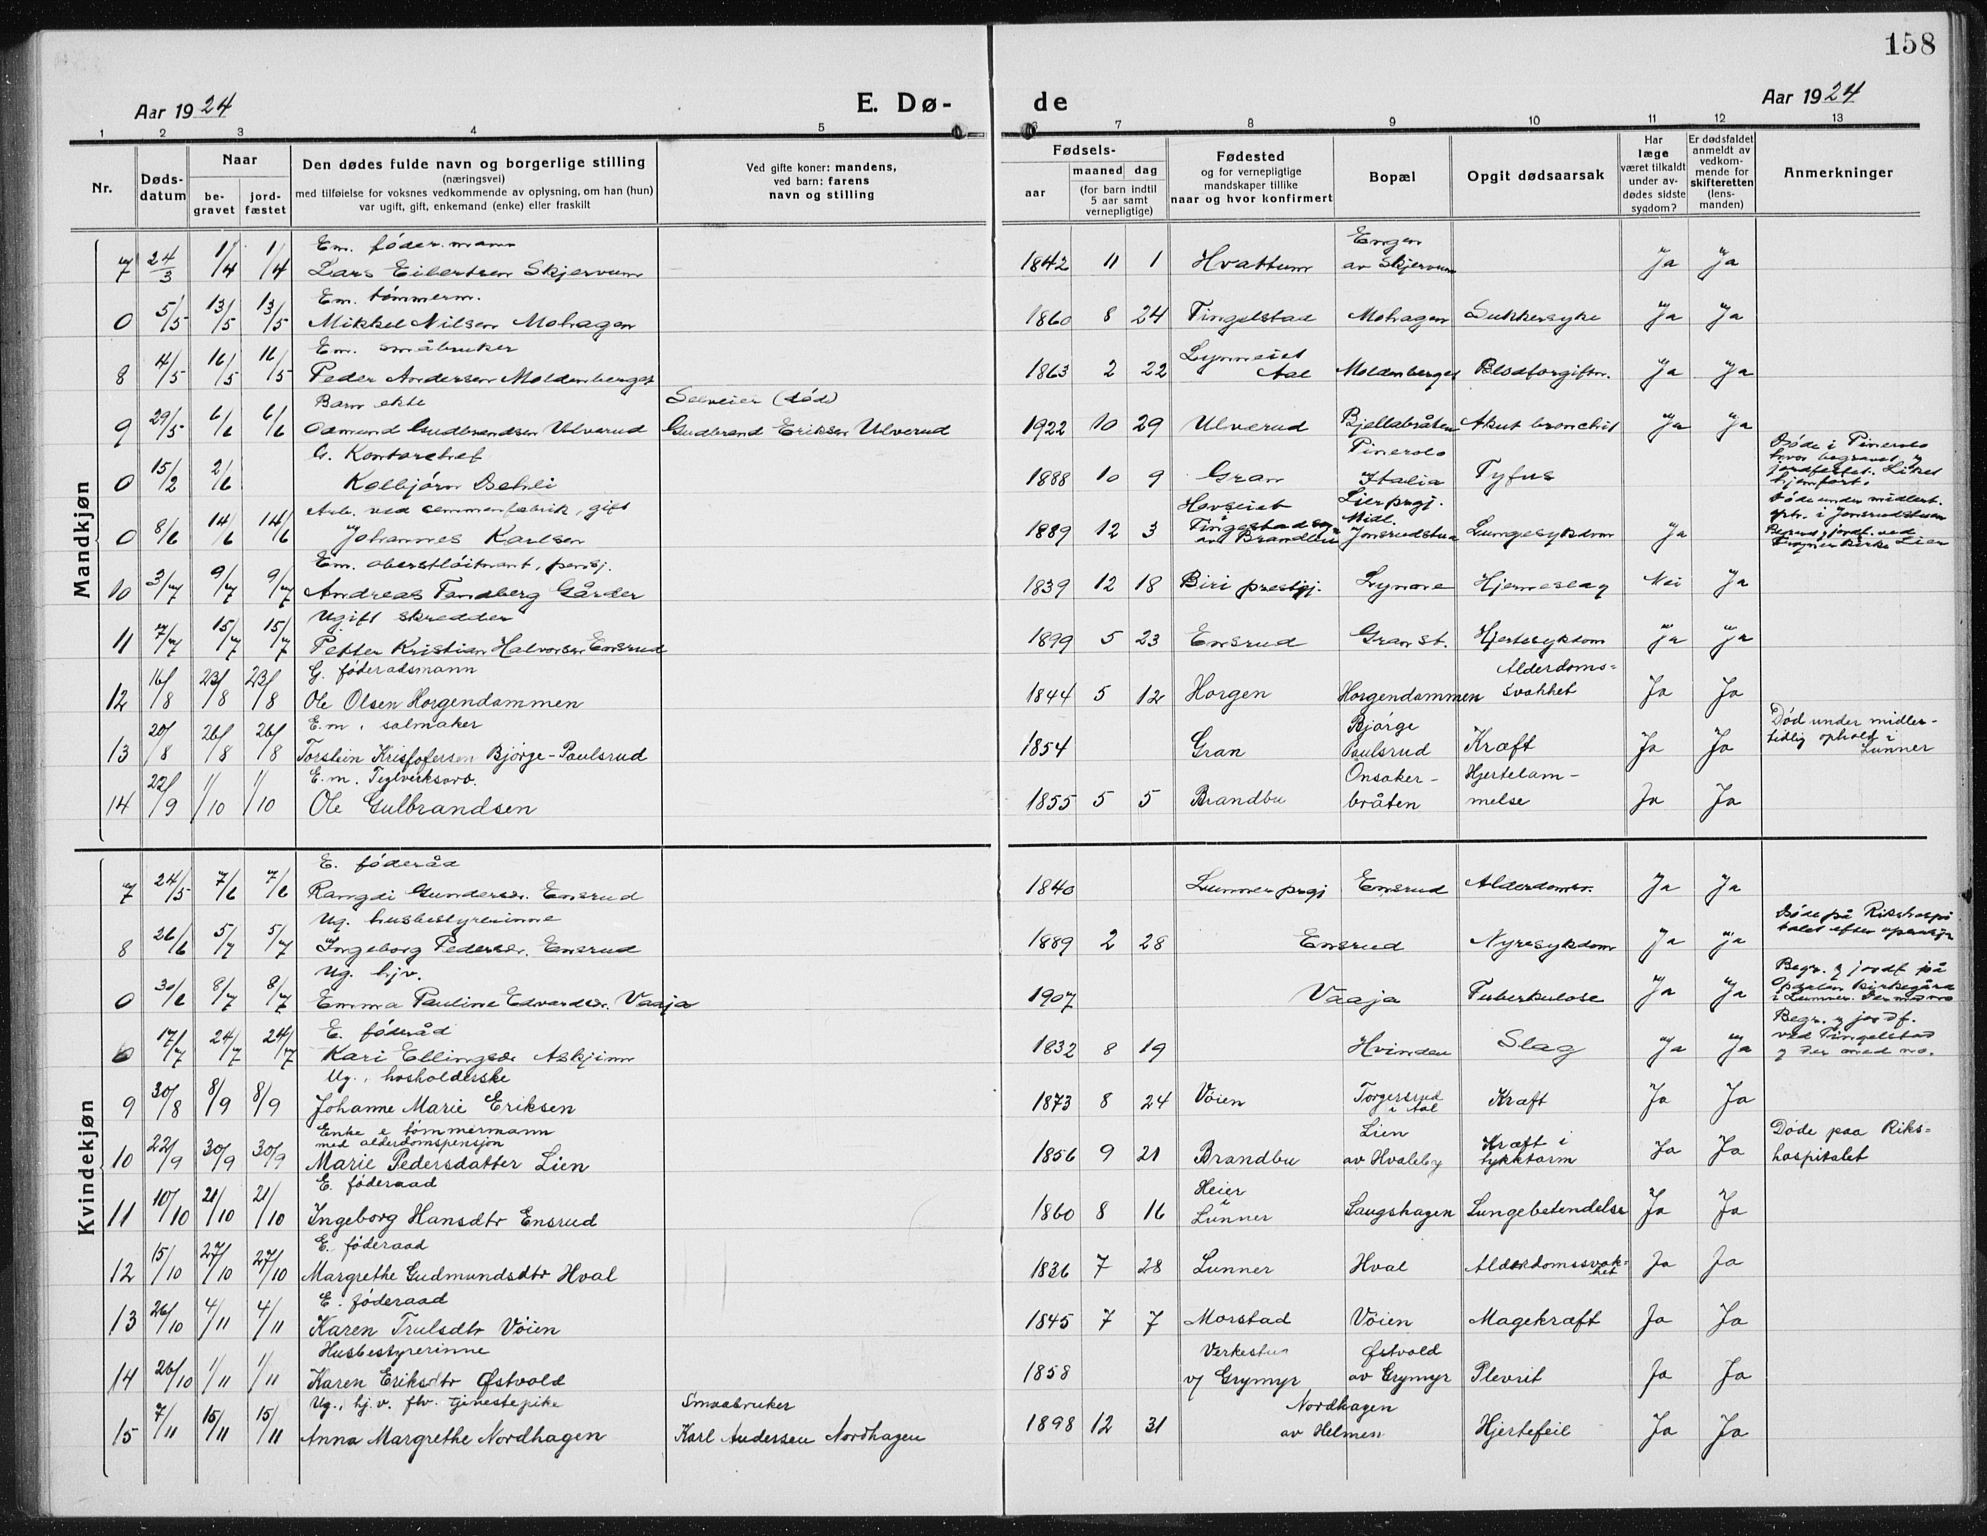 158
Aar 1924 E. Dø- de Aar 1924
1 2 3 4 5 6 7 8 9 10 11 12 13
Nr.
Døds-
datum
Naar
be-
gravet
jord-
fæstet
Den dødes fulde navn og borgerlige stilling
(næringsvei)
med tilføielse for voksnes vedkommende av oplysning, om han (hun)
var ugift, gift, enkemand (enke) eller fraskilt
Ved gifte koner: mandens,
ved barn: farens
navn og stilling
Fødsels-
aar
maaned dag
(for barn indtil
5 aar samt
vernepligtige)
Fødested
og for vernepligtige
mandskaper tillike
naar og hvor konfirmert
Bopæl
Opgit dødsaarsak
Har
læge
været tilkaldt
under av-
dødes sidste
sygdom?
Er dødsfaldet
anmeldt av
vedkom-
mende for
skifteretten
(lens-
manden)
Anmerkninger
Mandkjøn
Em. føder.mann Engen
7 24/3 1/4 1/4 Lars Eilertsen Skjervum 1842 11 1 Hvattum av Skjervum Ja Ja
Em. tømmerm.
0 5/5 13/5 13/5 Mikkel Nilsen Mohagen 1860 8 24 Tingelstad Mohagen Sukkersyke Ja Ja
Em. småbruker Lynneiet
8 4/5 16/5 16/5 Peder Andersen Moldenberget 1863 2 22 Aal Moldenberget Blodforgiftn. Ja Ja
Barn ekte Selveier (død)
9 29/5 6/6 6/6 Odmund Gudbrandsen Ulverud Gudbrand Eriksen Ulverud 1922 10 29 Ulverud Bjellabråten Akut bronchit Ja Ja
G. Kontorchef Pinerolo
0 15/2 2/6 Kolbjørn Dehli 1888 10 9 Gran Italia Tyfus Døde i Pinerolo
hvor begravet og
jordfestet. Liket
hjemført.
Arb. ved cementfabrik, gift Hovseiet i Lier prgj.
0 8/6 14/6 14/6 Johannes Karlsen 1889 12 3 Tingelstad sogn av Brandbu Midl. Jonsrudstua Lungesykdom Ja Døde under midlert.
oph. i Jonsrudstuen
Begr. og jordf. ved
Frogner Kirke Lier
Em. oberstløitnant, pensj.
10 3/7 9/7 9/7 Andreas Tandberg Gårder 1839 12 18 Biri prestgj. Lynne Hjerneslag Nei Ja
Ugift skredder
11 7/7 15/7 15/7 Petter Kristian Halvorsen Ensrud 1899 5 23 Ensrud Gran st. Hjertesykdom Ja Ja
G. føderadsmann Alderdoms=
12 16/8 23/8 23/8 Ole Olsen Horgendammen 1844 5 12 Horgen Horgendammen svakhet Ja Ja
E.m. salmaker Bjørge
13 20/8 26/8 26/8 Torstein Kristofersen Bjørge-Paulsrud 1854 Gran Paulsrud Kræft Ja Ja Død under midler-
tidlig ophold i
Lunner
E.m. Teglverksarb. Onsaker- Hjertelam-
14 22/9 1/10 1/10 Ole Gulbrandsen 1855 5 5 Brandbu bråten melse Ja Ja
Kvindekjøn
E. føderåd
7 24/5 7/6 7/6 Rangdi Gundersdr. Ensrud 1840 Lunner prgj Ensrud Alderdomsv. Ja Ja
Ug. husbestyrerinne
8 26/6 5/7 5/7 Ingeborg Pedersdr. Ensrud 1889 2 28 Ensrud Nyresykdom Ja Ja Døde på Rikshospi
talet efter operasjon
Ug. hjv.
0 30/6 8/7 8/7 Emma Pauline Edvardsdr. Vaaja 1907 Vaaja Tuberkulose Ja Ja Begr. og jordf på
Opdalen Kirkegård
i Lunner. Der med no
E. føderåd
0 17/7 24/7 24/7 Kari Ellingsdr Askjum 1832 8 19 Hvinden Slag Ja Ja Begr. og jordf.
ved Tingelstad
og der med no.
Ug., hosholderske
9 30/8 8/9 8/9 Johanne Marie Eriksen 1873 8 24 Vøien Torgersrud i Aal Kræft Ja Ja
Enke e tømmermann
med alderdomspensjon Lien Kræft i
10 22/9 30/9 30/9 Marie Pedersdatter Lien 1856 9 21 Brandbu av Hvaleby tykktarm Ja Ja Døde paa Riks=
hospitalet
E. føderaad Heier i
11 10/10 21/10 21/10 Ingeborg Hansdtr Ensrud 1860 8 16 Lunner Laugshagen Lungebetendelse Ja Ja
E. føderaad
12 15/10 27/10 27/10 Margrethe Gudmundsdtr Hval 1836 7 28 Lunner Hval Alderdomssvak-
het Ja Ja
E. føderaad
13 26/10 4/11 4/11 Karen Trulsdtr Vøien 1845 7 7 Morstad Vøien Magekræft Ja Ja
Husbestyrerinne Verkestua Østvold
14 26/10 1/11 1/11 Karen Eriksdtr Østvold 1858 v/ Grymyr av Grymyr Plevrit Ja Ja
Ug., hj.v. flv. tjenestepike Smaabruker Nordhagen
15 7/11 15/11 15/11 Anna Margrethe Nordhagen Karl Andersen Nordhagen 1898 12 31 av Helmen Hjertefeil Ja Ja